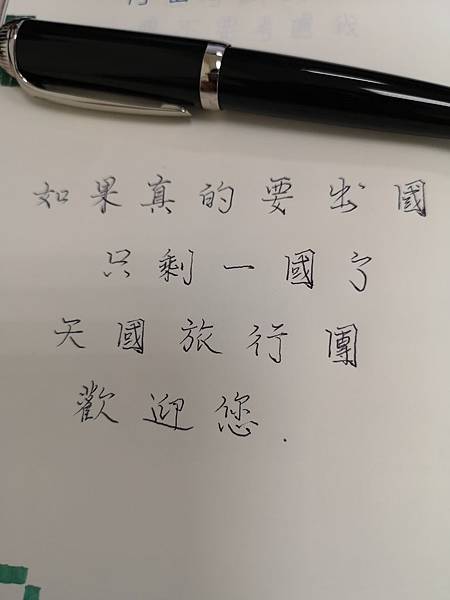 如果真的要出國
只剩一國了
天國旅行團
歡迎您.